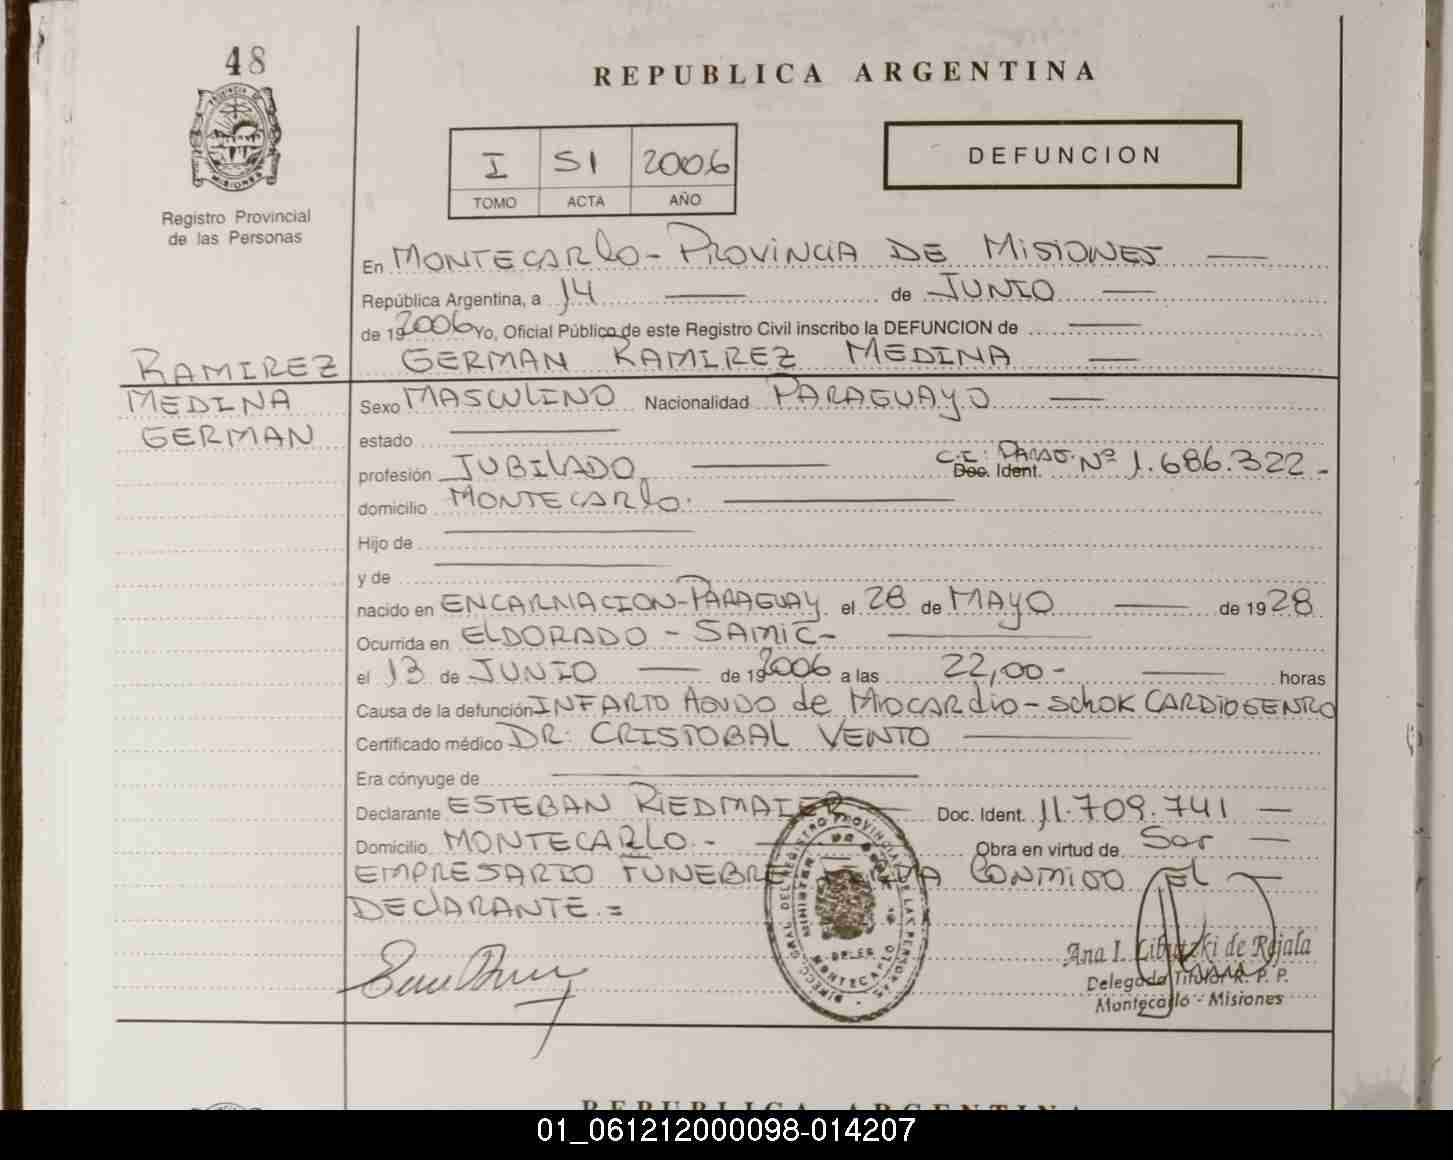 48
REPUBLICA ARGENTINA
I 51 2006
TOMO ACTA AÑO
DEFUNCION
PROVINCIA DE
MISIONES
Registro Provincial
de las Personas
En MONTECARLO - PROVINCIA DE MISIONES
República Argentina, a 14 de JUNIO
de 19 2006 Yo, Oficial Público de este Registro Civil inscribo la DEFUNCION de
RAMIREZ GERMAN RAMIREZ MEDINA
MEDINA Sexo MASCULINO Nacionalidad PARAGUAYO
GERMAN estado
profesión JUBILADO C.I: PARAG. Doc. Ident. Nº 1.686.322-
domicilio MONTECARLO.
Hijo de
y de
nacido en ENCARNACION-PARAGUAY el 28 de MAYO de 19 28
Ocurrida en ELDORADO - SAMIC-
el 13 de JUNIO de 19 2006 a las 22,00- horas
Causa de la defunción INFARTO AGUDO de MIOCARdio - SchOK CARDIOGENRO
Certificado médico DR: CRISTOBAL VENTO
Era cónyuge de
Declarante ESTEBAN RIEDMAIER Doc. Ident. 11.709.741
Domicilio MONTECARLO.- Obra en virtud de Ser
EMPRESARIO FUNEBRE CONMIGO EL
DECLARANTE.=
MONTECARLO
Ana I. de Rojala
Delegada Titular R. P. P.
Montecarlo - Misiones
REPUBLICA ARGENTINA
01_061212000098-014207